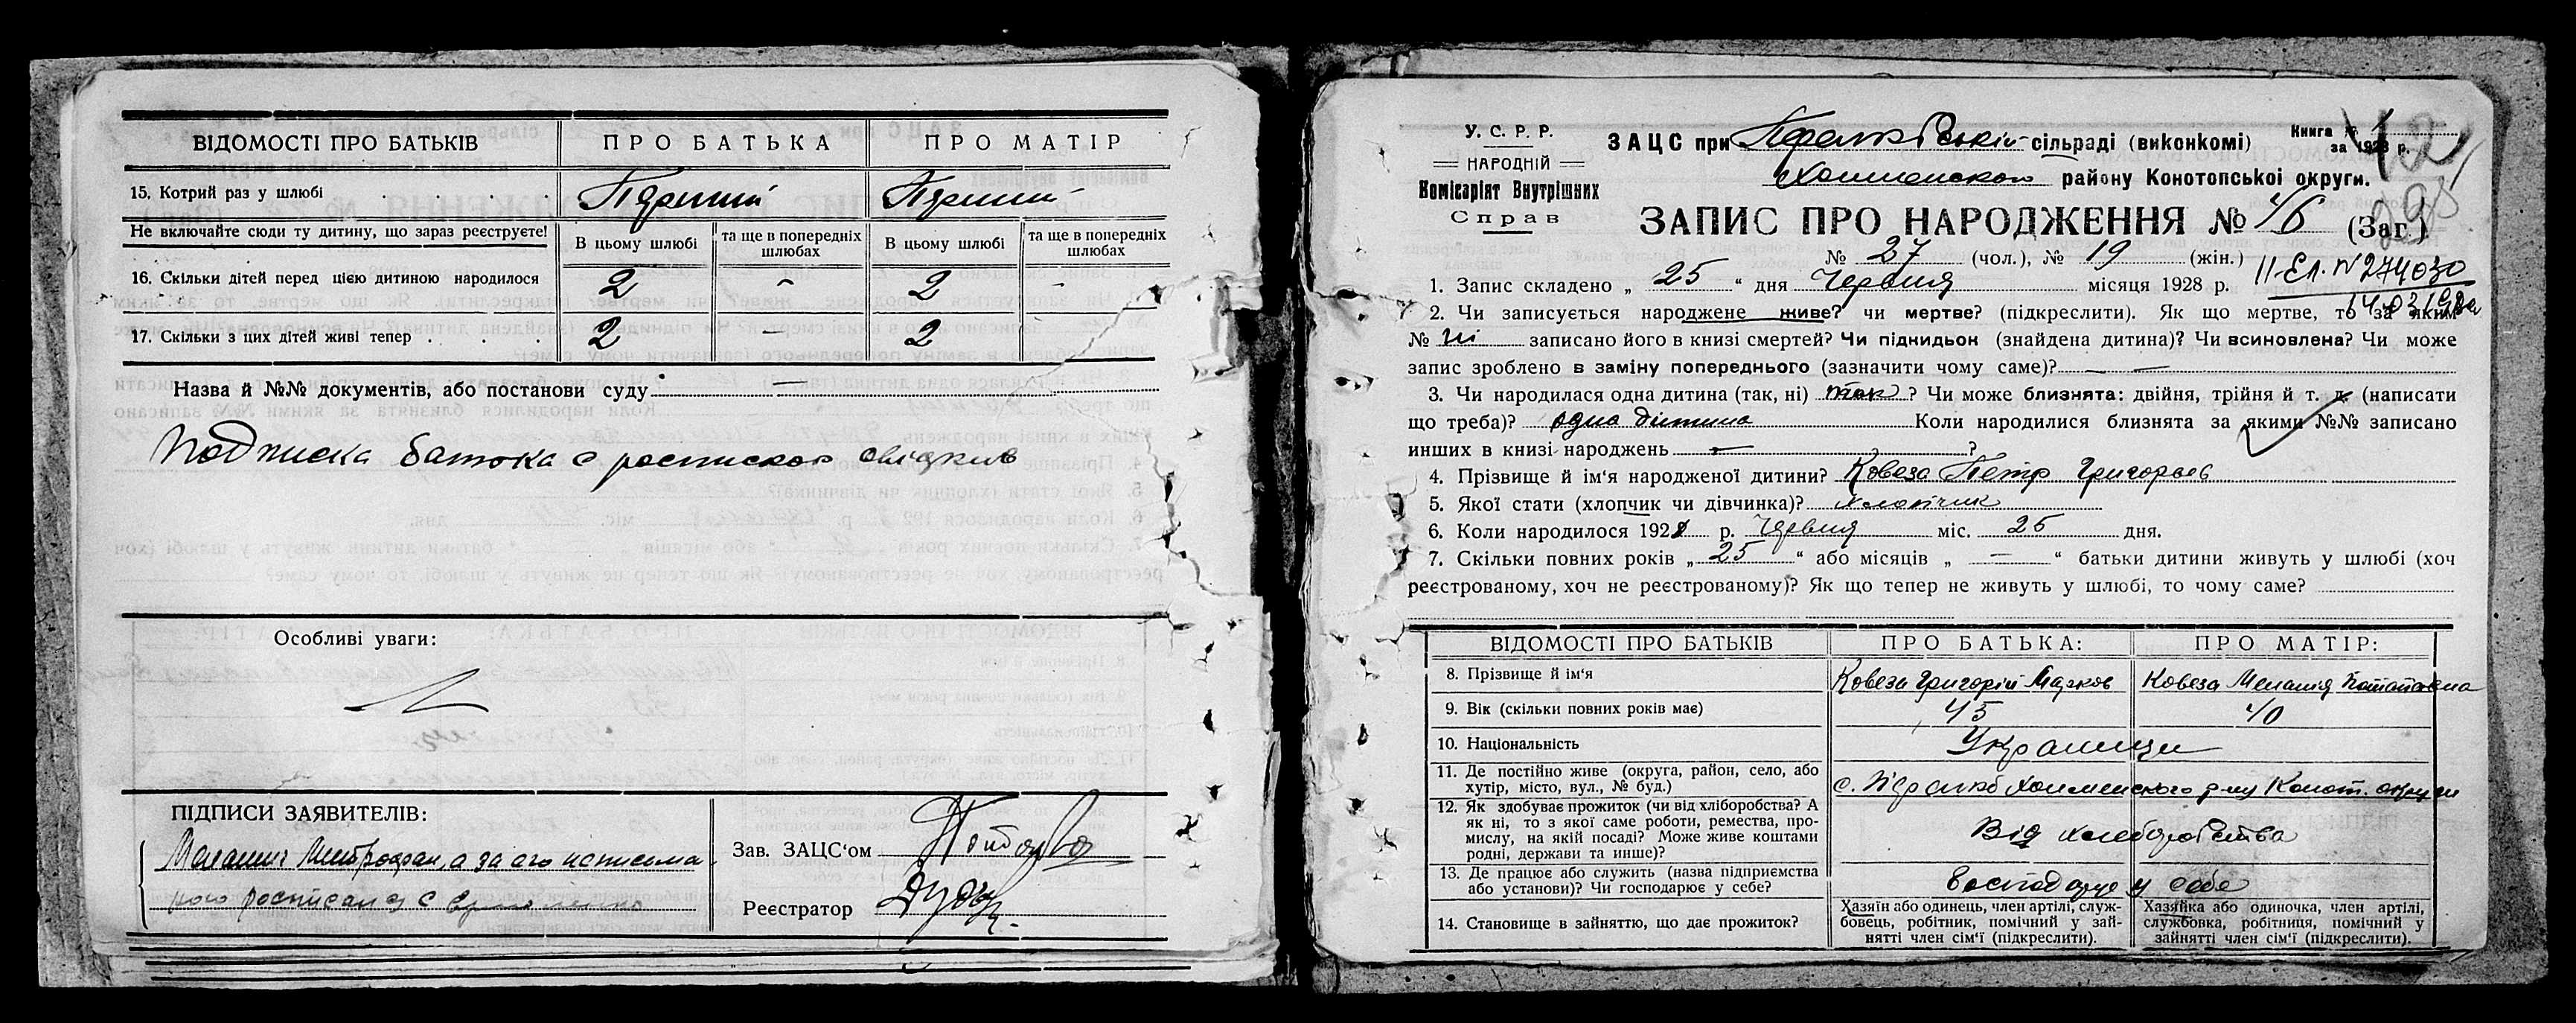 ВІДОМОСТІ ПРО БАТЬКІВ
ПРО БАТЬКА
ПРО МАТІР
15. Котрий раз у шлюбі
Перший
Перший
Не включайте сюди ту дитину, що зараз реєструєте!
В цьому шлюбі
та ще в попередніх шлюбах
В цьому шлюбі
та ще в попередніх шлюбах
16. Скільки дітей перед цією дитиною народилося
2 - 2 -
17. Скільки з цих дітей живі тепер . . .
2 — 2
Назва й №№ документів, або постанови суду —
Подписка батька с росписко
Особливі уваги:
ПІДПИСИ ЗАЯВИТЕЛІВ:
а за его
росписался
Зав. ЗАЦС‘ом
Реєстратор
У. С. Р. Р.
НАРОДНІЙ
Комісаріят Внутрішних
Справ
ЗАЦС при ській сільраді (виконкомі)
району Конотопської округи.
Книга № 1
за 1928 р.
ЗАПИС ПРО НАРОДЖЕННЯ № 46 (Заг.)
№ 27 (чол.), № 19 (жін.)
II-ЕЛ. N 274030
1. Запис складено „ 25 “ дня Червня місяця 1928 р.
2. Чи записується народжене живе? чи мертве? (підкреслити). Як що мертве, то за яким
№ ні записано його в книзі смертей? Чи підкидьок (знайдена дитина)? Чи всиновлена? Чи може
запис зроблено в заміну попереднього (зазначити чому саме)? — —
3. Чи народилася одна дитина (так, ні) так ? Чи може близнята: двійня, трійня й т. д. (написати
що треба)? одна дитина Коли народилися близнята за якими №№ записано
инших в книзі народжень — ?
4. Прізвище й ім‘я народженої дитини? Ковеза Петр Григорьев
5. Якої стати (хлопчик чи дівчинка)? хлопчик
6. Коли народилося 1928 р. Червня міс. 25 дня.
7. Скільки повних років „ 25 “ або місяців „ — “ батьки дитини живуть у шлюбі (хоч
реєстрованому, хоч не реєстрованому)? Як що тепер не живуть у шлюбі, то чому саме?
ВІДОМОСТІ ПРО БАТЬКІВ
ПРО БАТЬКА:
ПРО МАТІР:
8. Прізвище й ім‘я
Ковеза Григорій Марков
Ковеза Меланія Потаповна
9. Вік (скільки повних років має)
45
40
10. Національність
Украинци
11. Де постійно живе (округа, район, село, або
хутір, місто, вул., № буд.)
с. Конот. округи
12. Як здобуває прожиток (чи від хліборобства? А
як ні, то з якої саме роботи, ремества, про-
мислу, на якій посаді? Може живе коштами
родні, держави та инше)?
Від хлеборобства
13. Де працює або служить (назва підприємства
або установи)? Чи господарює у себе?
Господарює у себе
14. Становище в зайняттю, що дає прожиток?
Хазяїн або одинець, член артілі, служ-
бовець, робітник, помічний у зай-
нятті член сім‘ї (підкреслити).
Хазяйка або одиночка, член артілі,
службовка, робітниця, помічний у
зайнятті член сім‘ї (підкреслити).